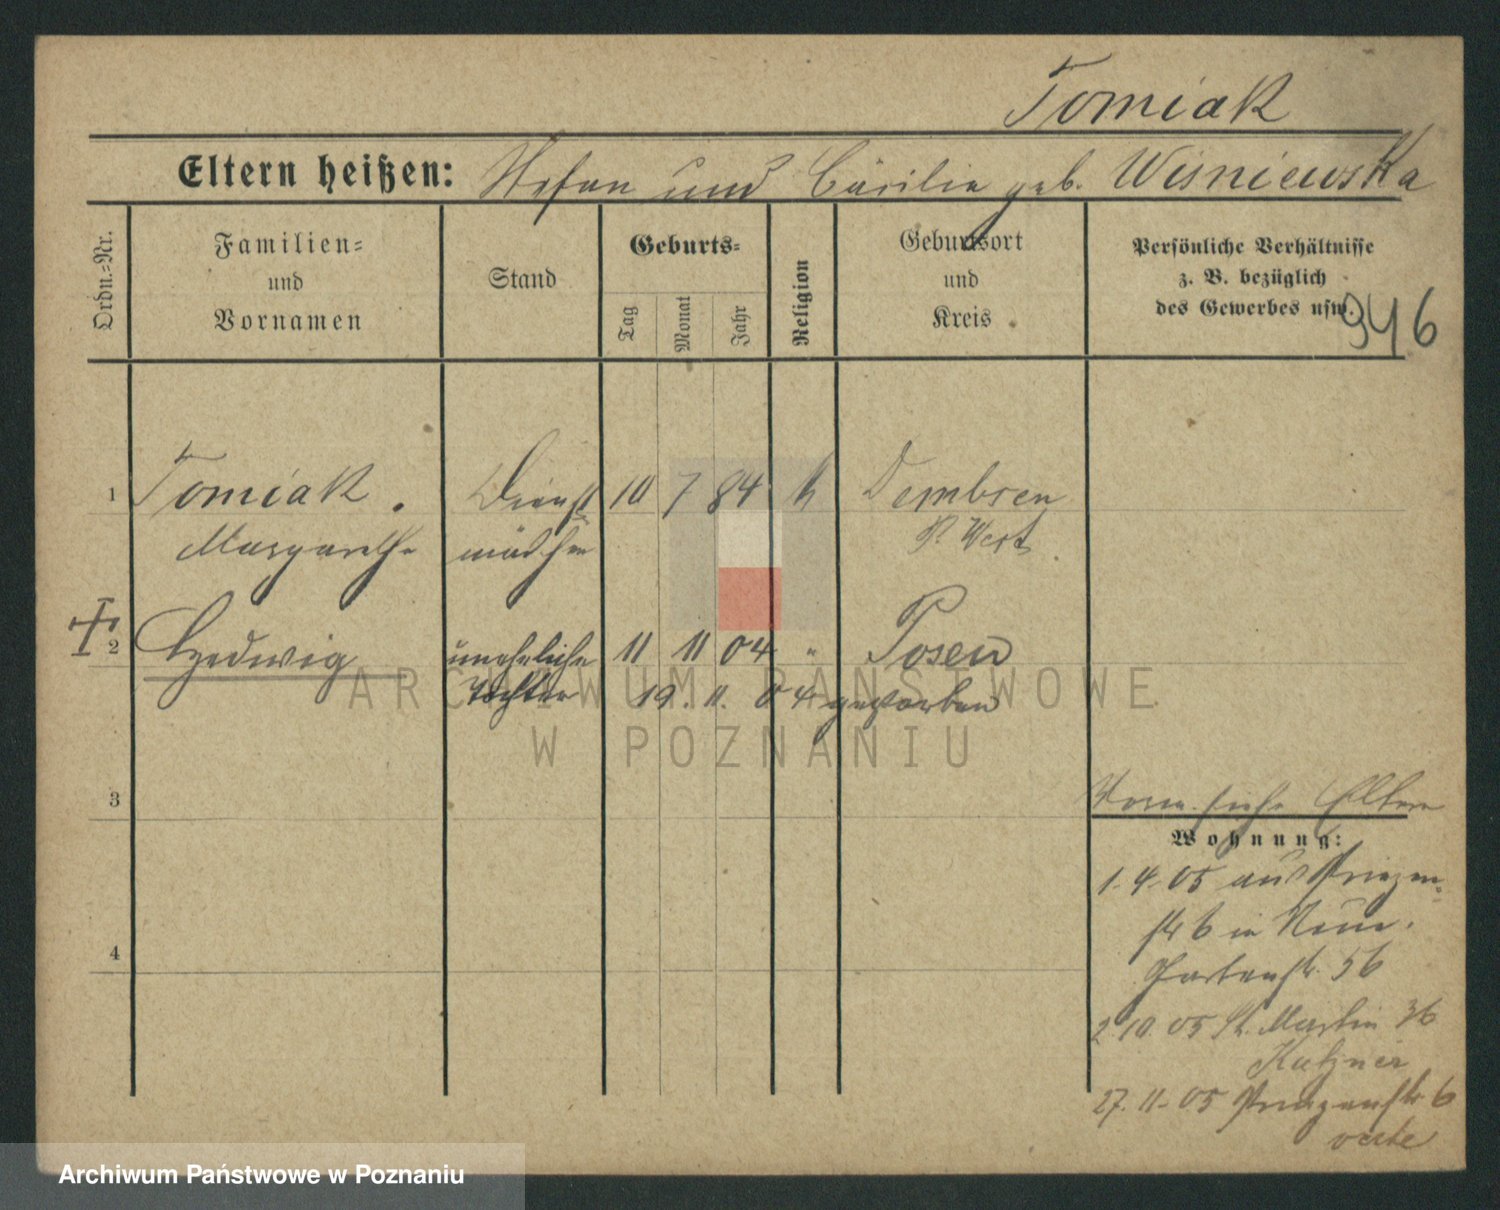 Tomiak
Eltern heißen: Stefan und Cäcilie geb. Wisniewska
Ordn.=Nr.
Familien=
und
Vornamen
Stand
Geburts=
Tag
Monat
Jahr
Religion
Geburtsort
und
Kreis
Persönliche Verhältnisse
z. B. bezüglich
des Gewerbes usw.
946
1 Tomiak. Dienst 10 7 84 k Dembsen
Margarethe mädchen P. West
2 Hedwig uneheliche 11 11 04 " Posen
Tochter 19. 11. 04 gestorben
ARCHIWUM PAŃSTWOWE
W POZNANIU
3
siehe Eltern
Wohnung:
1.4.05 aus Prinzen-
str 6 in Neue.
Gartenstr. 56
2.10.05 St. Martin 36
Kutzner
27.11.05 Prinzenstr. 6
4
Archiwum Państwowe w Poznaniu